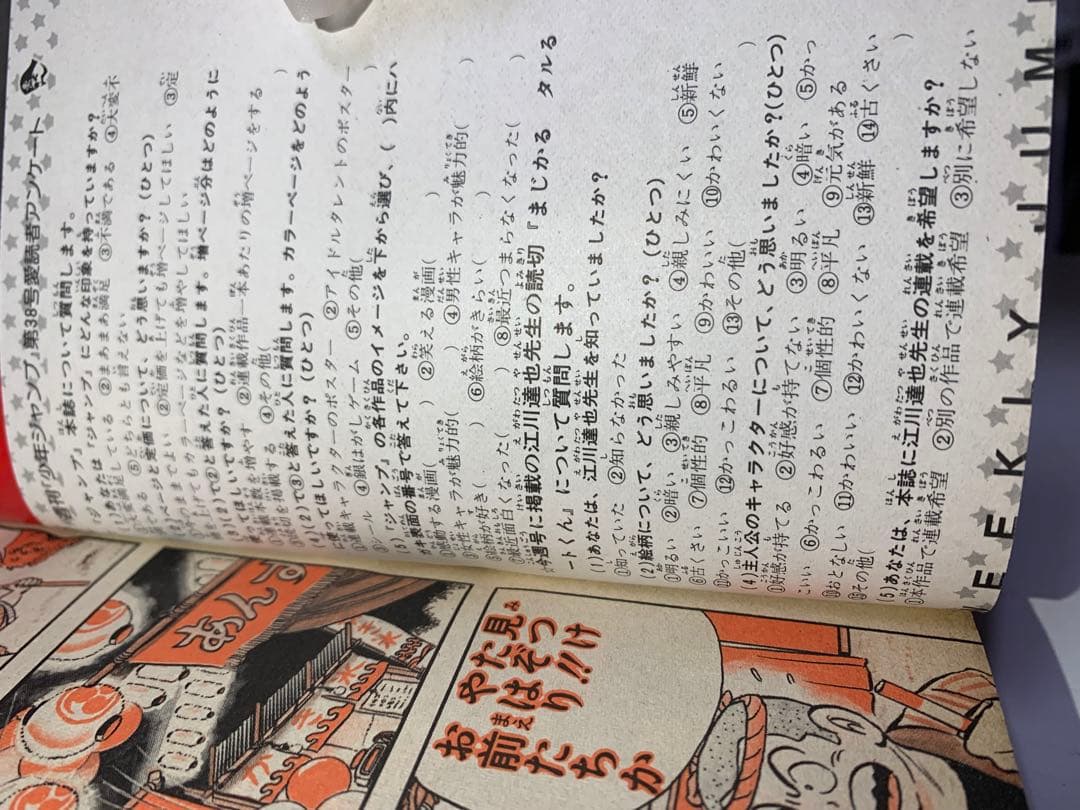 週刊『少年ジャンプ』第38号愛読者アンケート
本誌について質問します。
『ジャンプ』にどんな印象を持っていますか?
満足している ②まあまあ満足 ③不満である ④大変不
⑤どちらとも言えない
ページと定価について、どう思いますか?(ひとつ)
ままでよい ②定価を上げても増ページしてほしい ③定
てもカラーページなどを増やしてほしい
(2)で②と答えた人に質問します。増ページ分はどのように
してほしいですか?(ひとつ)
連載本数を増やす ②連載作品一本あたりの増ページをする
読切を掲載する ④その他( )
(2)で③と答えた人に質問します。カラーページをどのよう
に使ってほしいですか?(ひとつ)
連載キャラクターのポスター ②アイドルタレントのポスター
シール ④銀はがしゲーム ⑤その他( )
(5)『ジャンプ』の各作品のイメージを下から選び、( )内にハ
ガキ表面の番号で答えて下さい。
感動する漫画( ) ②笑える漫画( )
女性キャラが魅力的( ) ④男性キャラが魅力的( )
絵柄が好き( ) ⑥絵柄がきらい( )
最近面白くなった( ) ⑧最近つまらなくなった( )
☆今週号に掲載の江川達也先生の読切『まじかる タルる
ートくん』について質問します。
(1)あなたは、江川達也先生を知っていましたか?
①知っていた ②知らなかった
(2)絵柄について、どう思いましたか?(ひとつ)
①明るい ②暗い ③親しみやすい ④親しみにくい ⑤新鮮
⑥古くさい ⑦個性的 ⑧平凡 ⑨かわいい ⑩かわいくない
⑪かっこいい ⑫かっこわるい ⑬その他( )
(4)主人公のキャラクターについて、どう思いましたか?(ひとつ)
①好感が持てる ②好感が持てない ③明るい ④暗い ⑤かっ
こいい ⑥かっこわるい ⑦個性的 ⑧平凡 ⑨元気がある
⑩おとなしい ⑪かわいい ⑫かわいくない ⑬新鮮 ⑭古くさい
⑮その他( )
(5)あなたは、本誌に江川達也先生の連載を希望しますか?
①本作品で連載希望 ②別の作品で連載希望 ③別に希望しない
EEKLY JUM
あんず
お前たちか
やたはり!!
見つぞけ